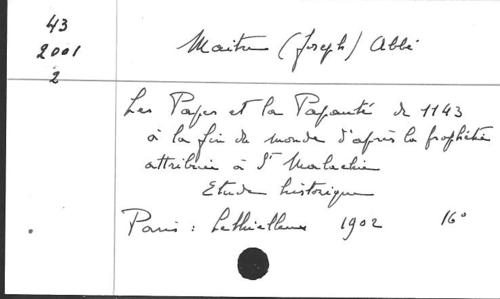 43
2001
2
Maitre (Joseph) Abbé
Les Papes et la Papauté de 1143
à la fin du monde d'après la prophétie
attribuée à St Malachie
Etude historique
Paris : Lethielleux 1902 16°